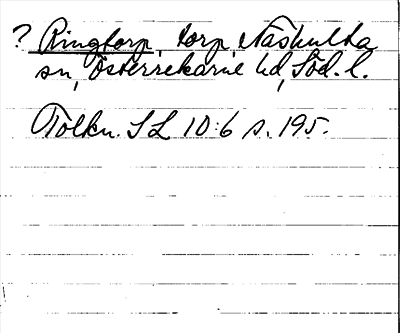 ? Ringtorp, torp, Näshulta
sn, Österrekarne hd, Söd. l.
Tolkn. SL 10:6 s. 195.